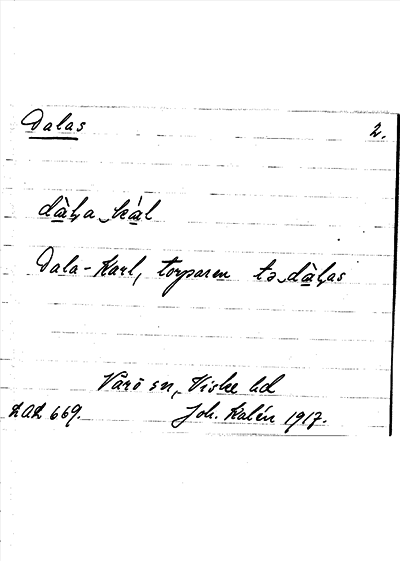 Dalas 2.
dàl̥a‿kál
Dala-Karl, torparen tə‿dàl̥as
Värö sn, Viske hd
LAL 669. Joh. Kalén 1917.